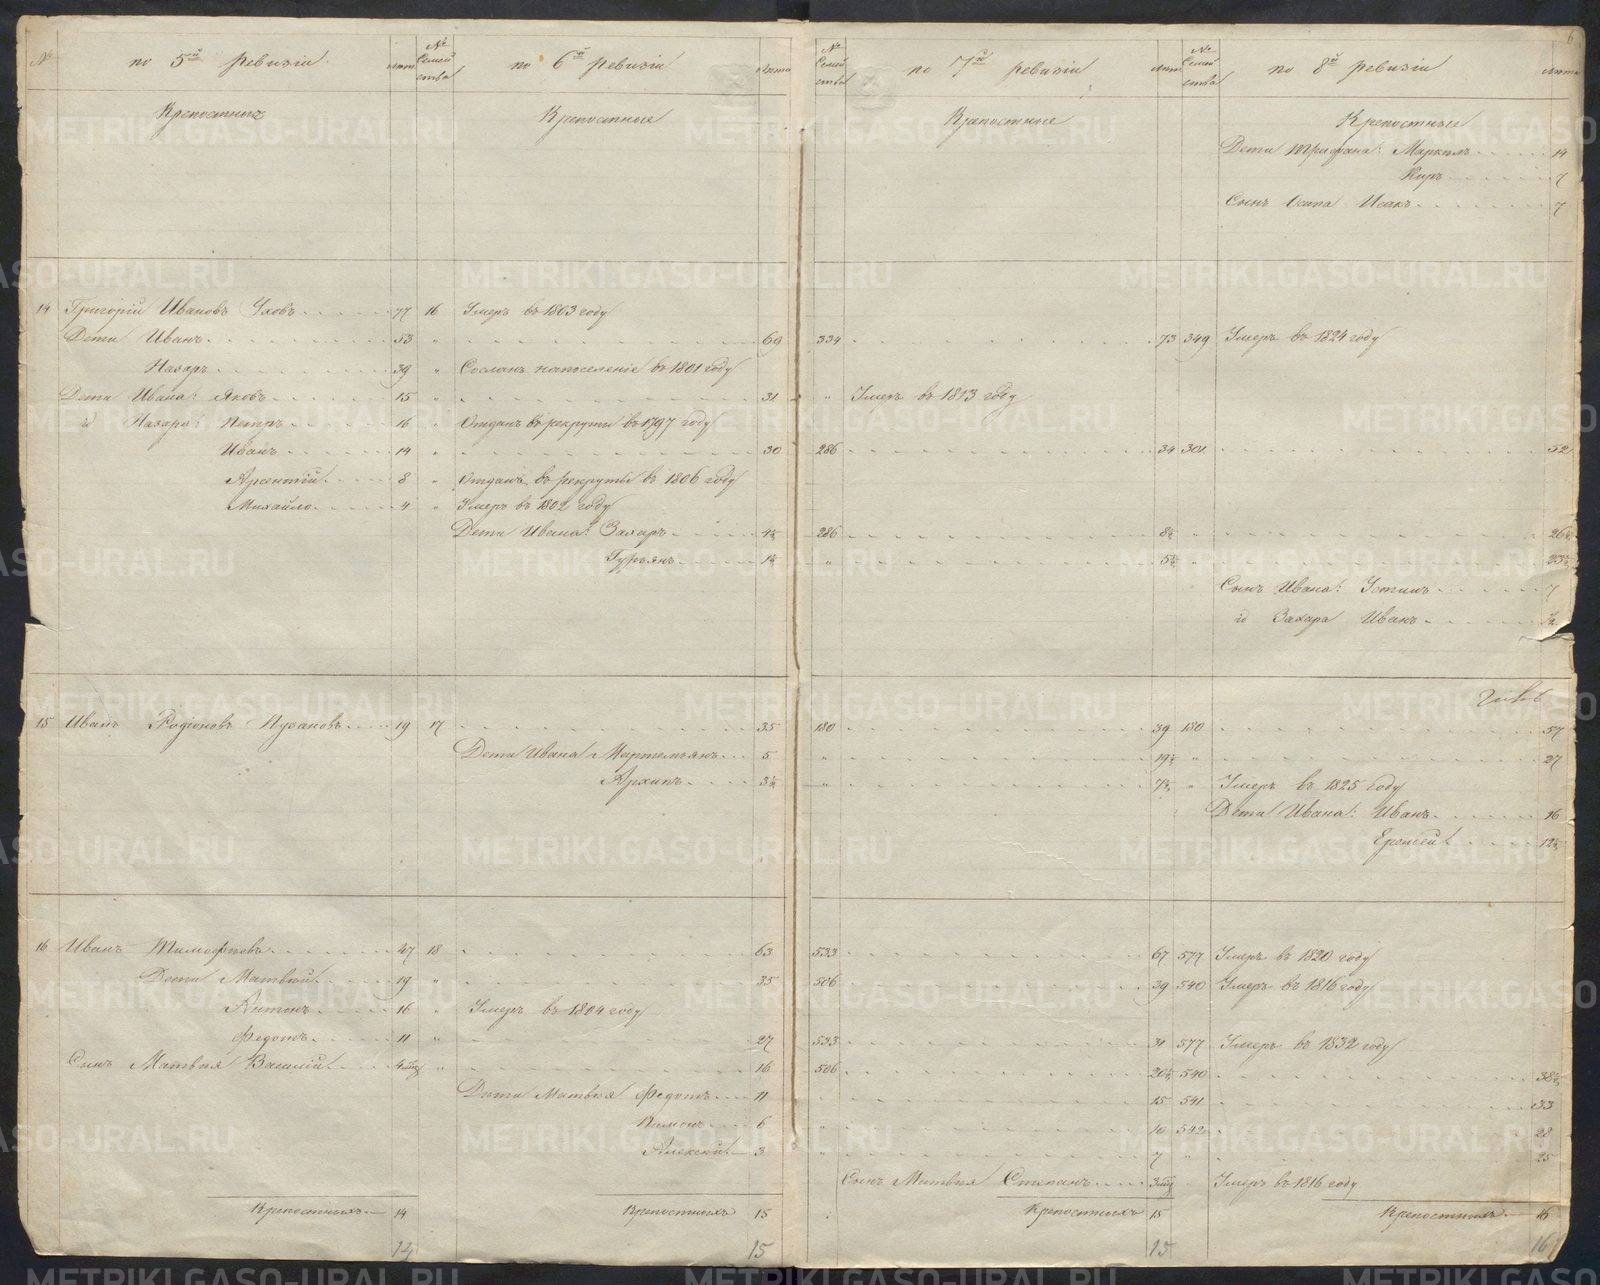 № по 5й ревизіи лѣта № Семейства по 6й ревизіи лѣта № Семейства по 7й ревизіи лѣта № Семейства по 8й ревизіи лѣта
6
Крепостныхъ Крепостные Крепостные Крепостные
Дети Трифана: Маркелъ 14
Киръ 7
Сынъ Осипа Исакъ 7
14 Григорій Ивановъ 77 16 Умеръ въ 1803 году
Дети Иванъ 53 " 69 334 73 349 Умеръ въ 1824 году
Назаръ 39 " Сосланъ напоселеніе въ 1801 году
Дети Ивана: Яковъ 15 " 31 " Умеръ въ 1813 году
id Назара: Петръ 16 " Отданъ въ рекруты въ 1797 году
Иванъ 14 " 30 286 34 301 52
Арсентій 8 " Отданъ въ рекруты въ 1806 году
Михайло 4 " Умеръ въ 1802 году
Дети Ивана: Захаръ 4½ 286 8½ " 26½
Гурьянъ 1½ " 5½ " 23½
Сынъ Ивана: Устинъ 7
id Захара Иванъ ½
15 Иванъ Родіоновъ Пузановъ 19 17 35 180 39 180 57
Дети Ивана: Мартемьянъ 5 " 19½ " 27
Архипъ 3½ " 7½ " Умеръ въ 1825 году
Дети Ивана: Иванъ 16
Еремей 12½
16 Иванъ Тимофѣевъ 47 18 63 533 67 577 Умеръ въ 1820 году
Дети Матвѣй 19 " 35 506 39 540 Умеръ въ 1816 году
Антонъ 16 " Умеръ въ 1804 году
Федотъ 11 " 27 533 31 577 Умеръ въ 1832 году
Сынъ Матвея Василій " 16 506 20½ 540 38½
Дети Матвея Федотъ 11 15 541 33
6 " 10 542 28
Алексей 3 " 7 " 25
Сынъ Матвея Степанъ " Умеръ въ 1816 году
Крепостныхъ 14 Крепостныхъ 15 Крепостныхъ 15 Крепостныхъ 16
14 15 15 16
METRIKI.GASO-URAL.RU